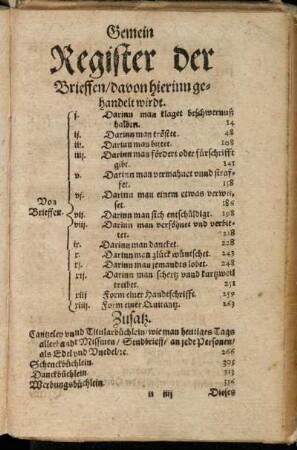 Gemein
Register der
Brieffen/davon hierinn ge-
handelt wirdt.
Von
Brieffen.
j. Darinn man klaget beschwernuß
halben. 14
ij. Darinn man tröstet. 48
iij. Darinn man bittet. 108
iiij. Darinn man fördert oder fürschrifft
gibt. 141
v. Darinn man vermahnet vnnd straf-
fet. 158
vj. Darinn man einem etwas verwei-
set. 186
vij. Darinn man sich entschüldigt. 198
viij. Darinn man versöhnet vnd verbit-
tet. 218
ix. Darinn man dancket. 228
x. Darinn man glück wüntschet. 243
xj. Darinn man jemandts lobet. 248
xij. Darinn man schertz vnnd kurtzweil
treibet. 251
xiij Form einer Handtschrifft. 259
xiiij. Form einer Quitantz. 263
Zusatz.
Cantzeley vnnd Titularbüchlein/wie man heutiges Tags
allerhandt Missiuen/ Sendbrieff/ an jede Personen/
als Edel vnd Vnedel/ꝛc. 266
Schenckbüchlein. 305
Danckbüchlein. 313
Werbungsbüchlein. 316
iiij Dieses